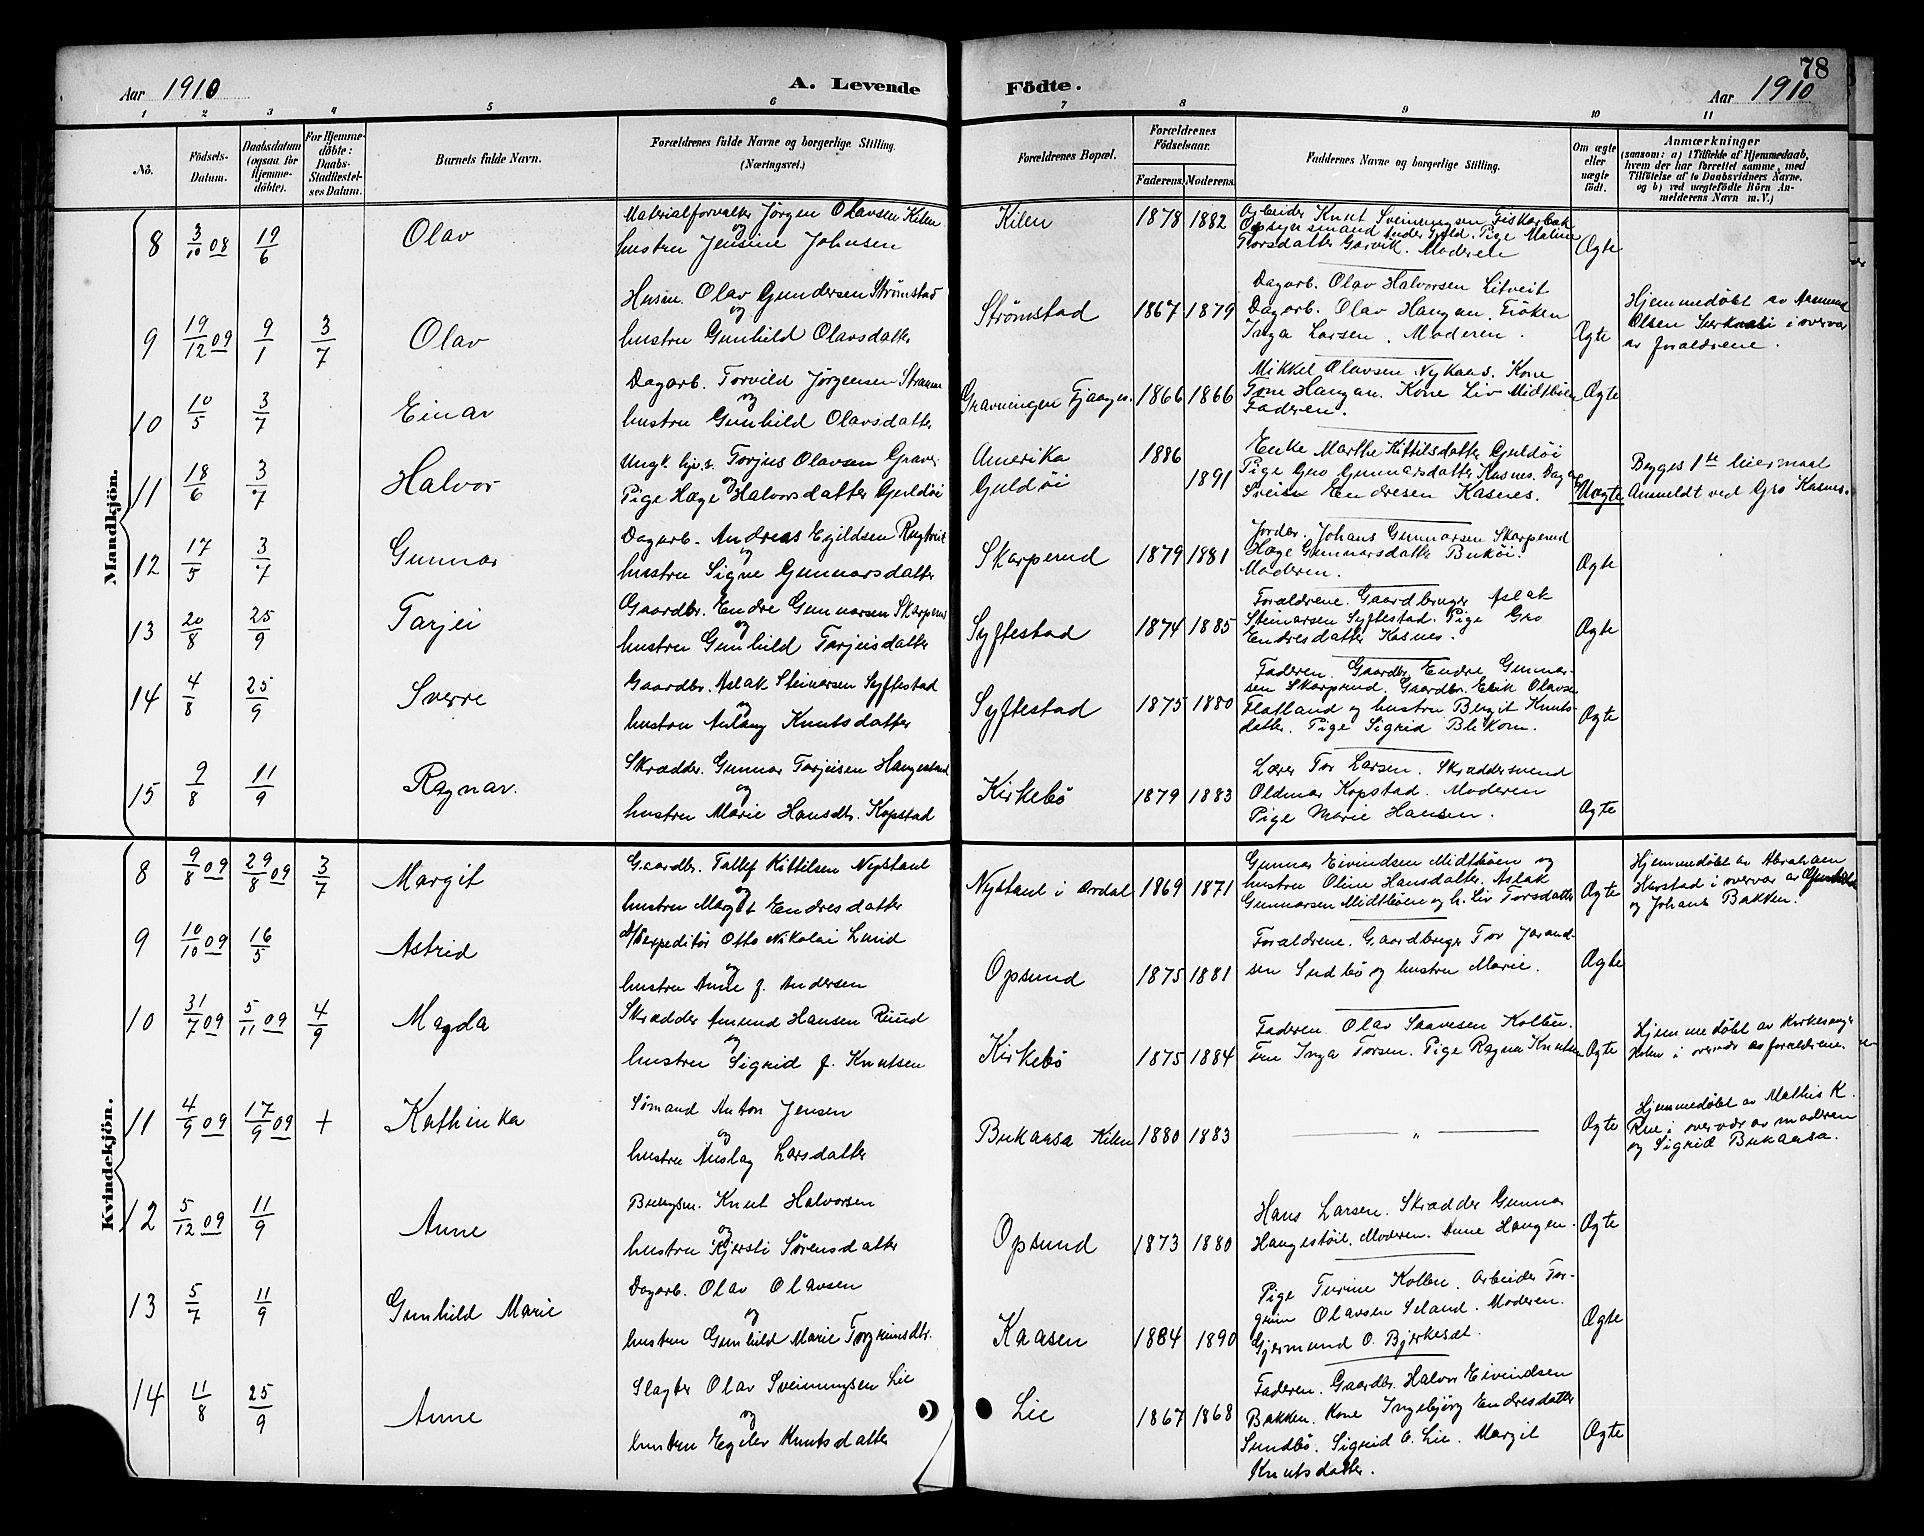 78
Aar 1910
A. Levende Födte.
Aar 1910
1 2 3 4 5 6 7 8 9 10 11
No.
Födsels-Datum.
Daabsdatum (ogsaa for Hjemme-döbte).
For Hjemme-döbte: Daabs-Stadfæstel-ses Datum.
Barnets fulde Navn.
Forældrenes fulde Navne og borgerlige Stilling. (Næringsvei.)
Forældrenes Bopæl.
Forældrenes Födselsaar.
Faderens. Moderens.
Faddernes Navne og borgerlige Stilling.
Om ægte eller uægte födt.
Anmærkninger
(saasom: a) i Tilfælde af Hjemmedaab,
hvem der har forrettet samme, med
Tilföielse af to Daabsvidners Navne,
og b) ved uægtefödte Börn An-
melderens Navn m. V.)
Mandkjön.
8 3/10 08 19/6 Olav
Materialforvalter Jörgen Olavsen Kilen
og
hustru Jensine Johnsen
Kilen 1878 1882
Arbeider Knut Sveinungsen Fiskerbak
Opsynsmand Peder Fjeld. Pige Matine
Torsdatter Garvik. Moderen
Ægte
9 19/12 09 9/1 3/7 Olav
Husm. Olav Gundersen Strømstad
og
hustru Gunhild Olavsdatter
Strømstad 1867 1879
Dagarb. Olav Halvorsen Litveit
Dagarb. Olav Haugan. Frøken
Inga Larsen. Moderen.
Ægte
Hjemmedøbt av Aasmund
Olsen i overvær
av forældrene.
10 10/5 3/7 Einar
Dagarb. Torvild Jørgensen Straume
og
hustru Gunhild Olavsdatter
Gravningen Fjaages. 1866 1866
Mikkel Olavsen Nykaas. Kone
Tone Haugan. Kone Liv Midtbøen
Faderen.
Ægte
11 18/6 3/7 Halvor
Ungk. Torjus Olavsen Graver
og
Pige Hæge Halvorsdatter Guldøi
Amerika 1886
Guldøi 1891
Enke Marthe Kittilsdatter Guldøi
Pige Gro Gunnarsdatter Kasnes. Dagarb
Svein Endresen Kasnes.
Uægte
Begges 1ste leiermaal
Anmeldt ved Gro Kasnes.
12 17/5 3/7 Gunnar
Dagarb. Andreas Egildsen Rugtveit
og
hustru Signe Gunnarsdatter
Skarperud 1879 1881
Jordbr. Johans Gunnarsen Skarperud
Hæge Gunnarsdatter Bukøi.
Moderen.
Ægte
13 20/8 25/9 Tarjei
Gaardbr. Endre Gunnarsen Skarperud
og
hustru Gunhild Tarjeisdatter
Syftestad 1874 1885
Forældrene. Gaardbruger Aslak
Steinarsen Syftestad. Pige Gro
Endresdatter Kasnes.
Ægte
14 4/8 25/9 Sverre
Gaardbr. Aslak Steinarsen Syftestad
og
hustru Anlaug Knutsdatter
Syftestad 1875 1880
Faderen. Gaardbr. Endre Gunnar-
sen Skarperud. Gaardbr. Eirik Olavsen
Flatland og hustru Bergit Knuts-
datter. Pige Sigrid Blikom.
Ægte
15 9/8 11/9 Ragnar.
Skrædder. Gunnar Tarjeisen Haugestaul
og
hustru Marie Hansdtr. Kopstad
Kirkebø 1879 1883
Lærer Tor Larsen. Skræddersvend
Oldmar Kopstad. Moderen
Pige Marie Hansen.
Ægte
Kvindekjön.
8 9/8 09 29/8 09 3/7 Margit
Gaardbr. Tallef Kittelsen Nystaul
og
hustru Margit Endresdatter
Nystaul i Ordal 1869 1871
Gunnar Eivindsen Midtbøen og
hustru Oline Hansdatter. Aslak
Gunnarsen Midtbøen og h. Liv Torsdatter
Ægte
Hjemmedøbt av Abraham
Harstad i overvær av Gunhild
og Johans Bakken.
9 10/10 09 16/5 Astrid
D/Sexpeditör Otto Nikolai Lund
og
hustru Anne f. Andersen
Opsund 1875 1881
Forældrene. Gaardbruger Tor Jorand-
sen Sudbø og hustru Marie.
Ægte
10 31/7 09 5/11 09 4/9 Magda
Skrædder Amund Hansen Ruud
og
hustru Sigrid f. Knutsen
Kirkebø 1875 1884
Faderen. Olav Saavesen Kolben.
Fru Inga Torsen. Pige Ragna Knutsen
Ægte
Hjemmedøbt av Kirkesanger
Holm i overvær av forældrene.
11 4/9 09 17/9 09 + Kathinka
Sømand Anton Jensen
og
hustru Auslag Larsdatter
Bukaasa Kilen 1880 1883
— " —
Ægte
Hjemmedøbt av Mathis K.
Rue i overvær av moderen
og Sigrid Bukaasa.
12 5/12 09 11/9 Anne
Knut Halvorsen
og
hustru Kjersti Sørensdatter
Opsund 1873 1880
Hans Larsen. Skrædder Gunnar
Haugestøil. Moderen. Anne Haugen.
Ægte
13 5/7 11/9 Gunhild Marie
Dagarb. Olav Olavsen
og
hustru Gunhild Marie Torgrimsdtr.
Kaasen 1884 1890
Pige Turine Kolben. Arbeider Tor-
grim Olavsen Seland. Moderen.
Gjermund O. Bjerkesæt.
Ægte
14 11/8 25/9 Anne
Slagter Olav Sveinungsen Lie
og
hustru Egelev Knutsdatter
Lie 1867 1868
Faderen. Gaardbr. Halvor Eivindsen
Bakken. Kone Ingebjørg Endresdatter
Sundbø. Sigrid O. Lie. Margit
Knutsdatter.
Ægte